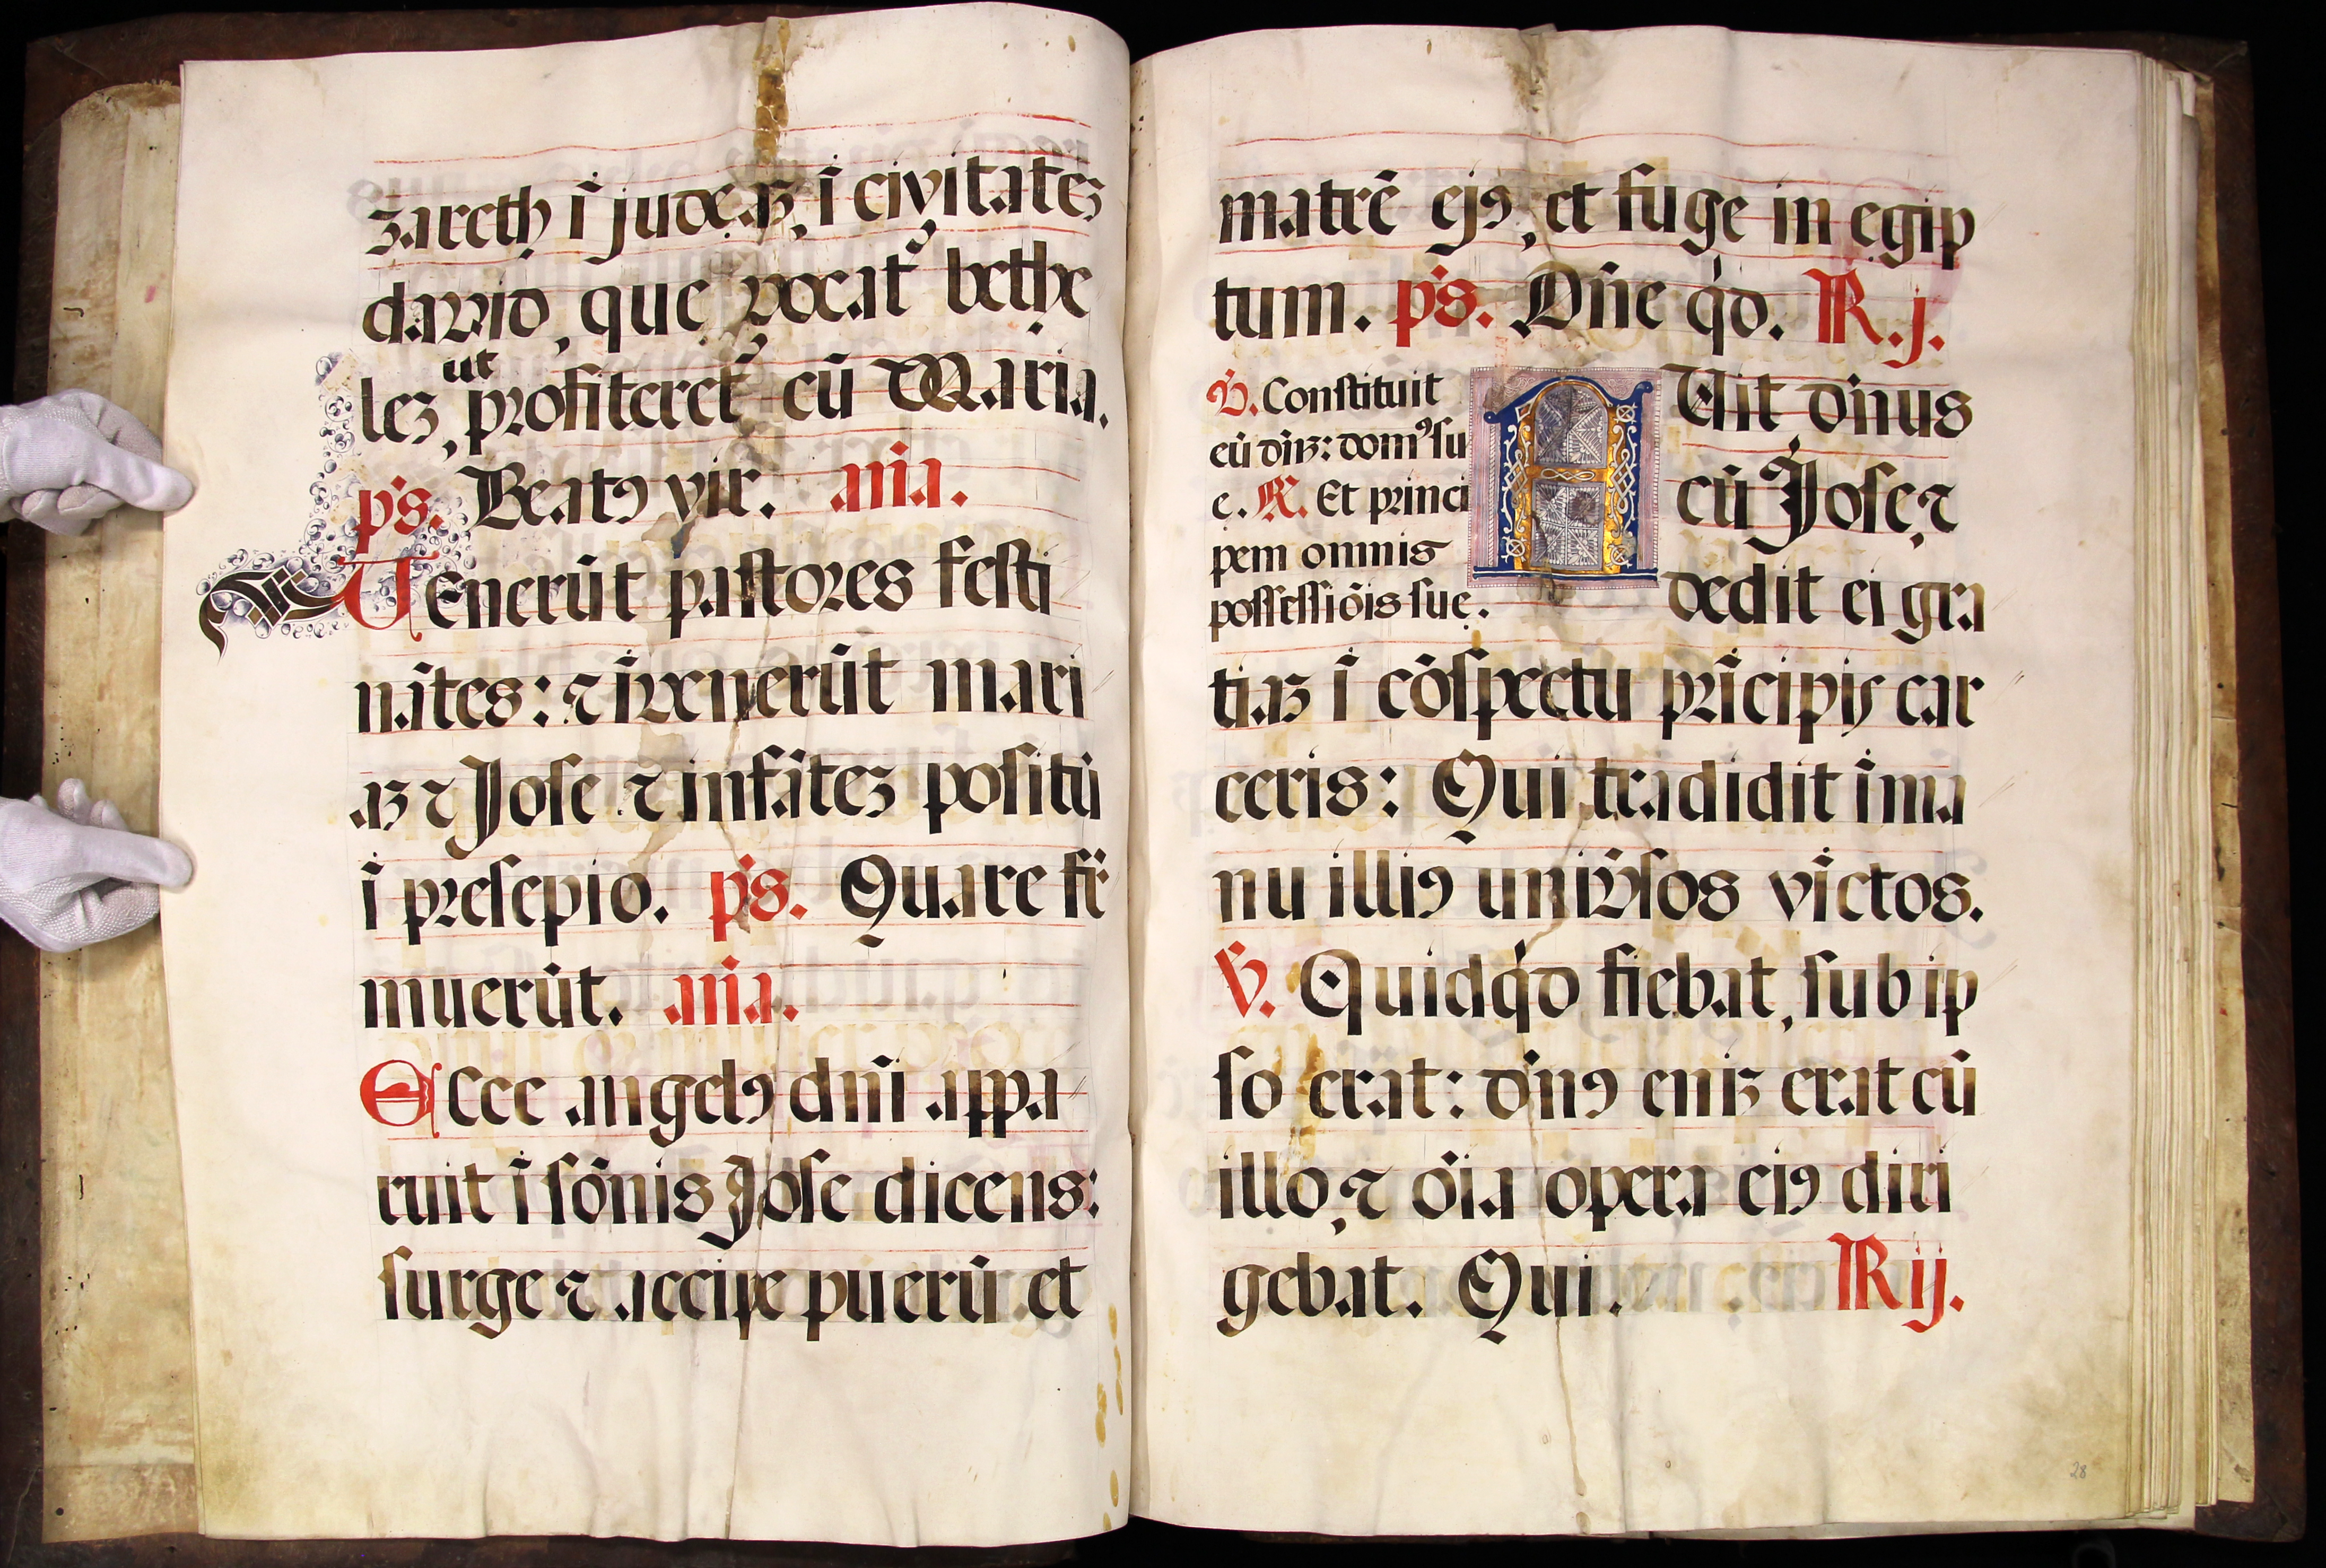 zareth ī judeaʒ, ī civitateʒ
david, que vocat᷑ bethe
ut
leʒ, profiteret᷑ cū Maria.
p̄s. Beatꝰ vir. an̄a.
Venerūt paſtores feſti
nātes: ⁊ īvenerūt mari
aʒ ⁊ Joſe ⁊ infāteʒ poſitū
ī preſepio. p̄s. Quare fr̄
muerūt. an̄a.
Ecce angelꝰ dn̄i appa
ruit ī ſōnis Joſe dicens:
ſurge ⁊ accipe puerū et
matrē ejꝰ, et fuge in egip
tum. p̄s. Dn̄e qd̄. R. j.
℣. Conſtituit
eū dn̄ʒ: domꝰ ſu
e. ℟. Et princi
pem omnis
poſſeſſiōis ſue.
FUit dn̄us
cū Joſe, ⁊
dedit ei gra
tiaʒ ī cōſpectu prīcipis car
ceris: Qui tradidit ī ma
nu illiꝰ univ̄ſos vīctos.
℣. Quidqd̄ fiebat, ſub ip
ſo erat: dn̄ꝰ eniʒ erat cū
illo, ⁊ ōia opera eiꝰ diri
gebat. Qui. R ij.
28